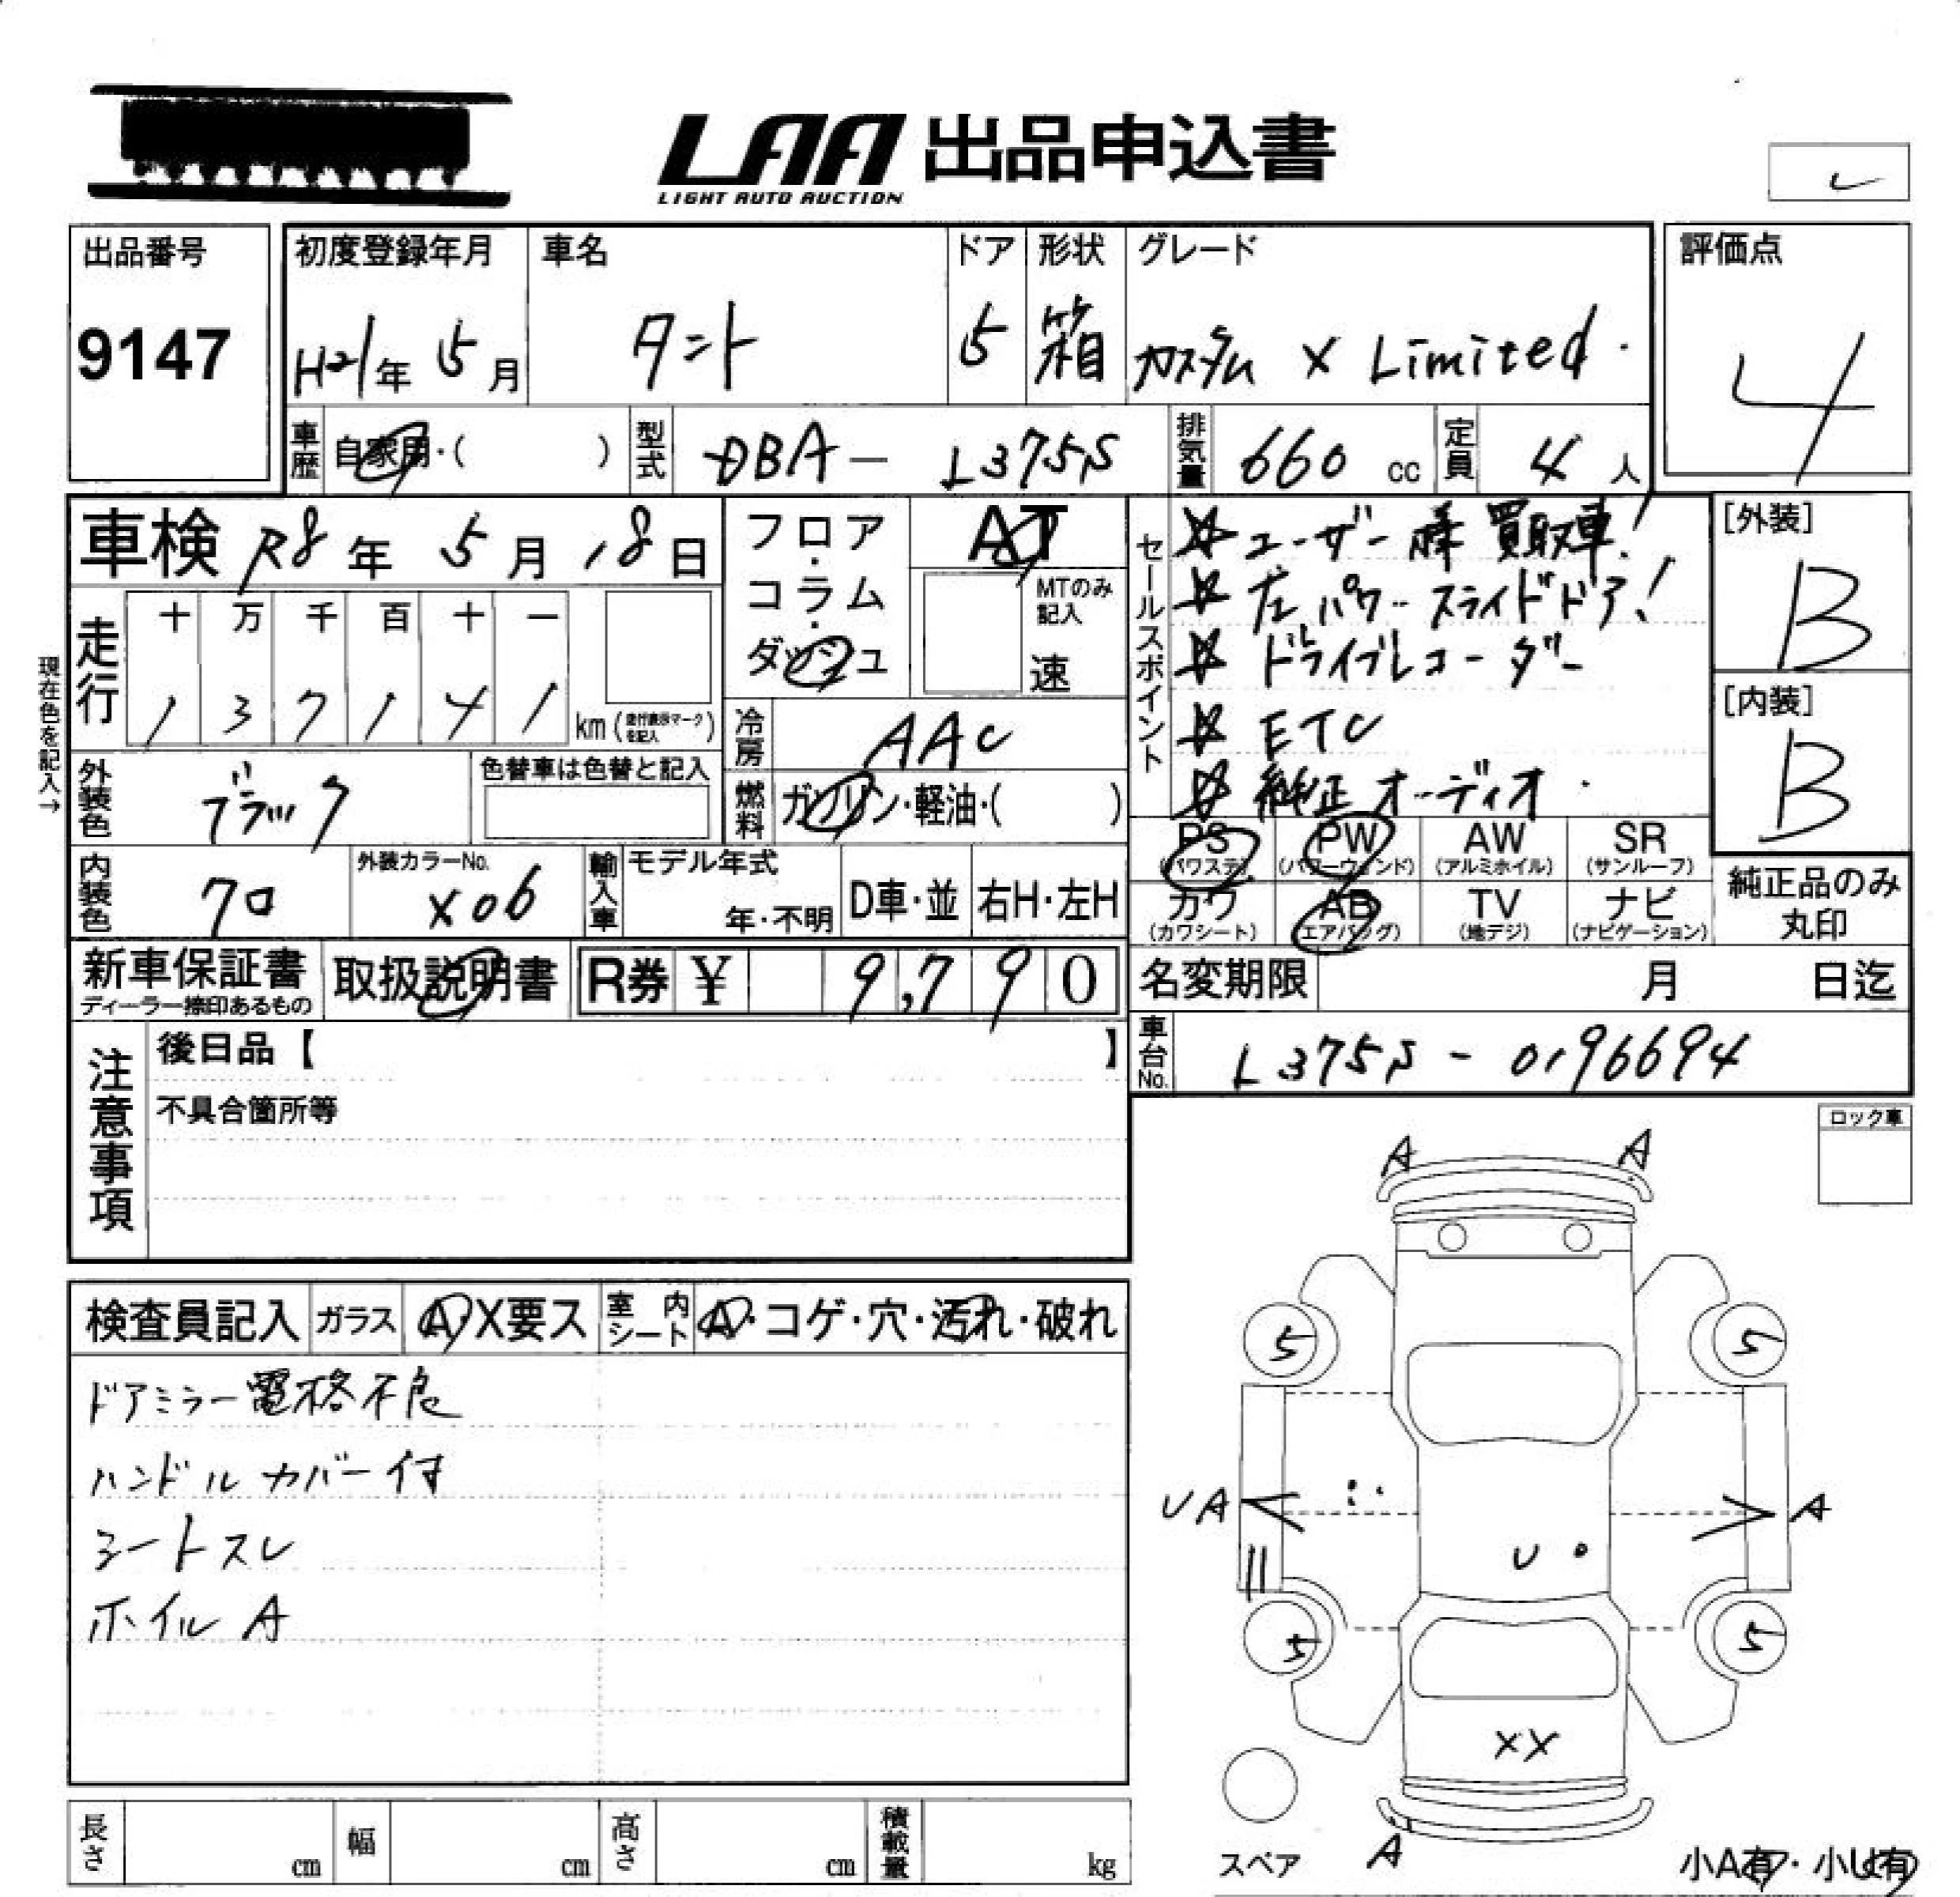 LAA 出品申込書
LIGHT AUTO AUCTION
出品番号
9147
初度登録年月
H21年 5月
車名
タント
ドア
5
形状
箱
グレード
カスタム X Limited
評価点
4
車歴 自家用・( )
型式 DBA- L375S
排気量 660 cc
定員 4 人
車検 R8年 5月 18日
現在色を記入→
走行
十 万 千 百 十 一
1 3 7 1 4 1 km (走行表示マークを記入)
フロア・コラム・ダッシュ
AT
MTのみ記入
速
冷房 AAC
燃料 ガソリン・軽油・( )
外装色 ブラック
色替車は色替と記入
内装色 クロ
外装カラーNo.
X06
輸入車
モデル年式
年・不明
D車・並
右H・左H
セールスポイント
☆ ユーザー様買取車!
☆ 左パワースライドドア!
☆ ドライブレコーダー
☆ ETC
☆ 純正オーディオ
[外装]
B
[内装]
B
PS (パワステ)
PW (パワーウィンド)
AW (アルミホイル)
SR (サンルーフ)
カワ (カワシート)
AB (エアバッグ)
TV (地デジ)
ナビ (ナビゲーション)
純正品のみ
丸印
新車保証書
ディーラー捺印あるもの
取扱説明書
R券 ¥ 9,790
名変期限 月 日迄
車台No. L375S-0196694
注意事項
後日品【 】
不具合箇所等
ロック車
検査員記入
ガラス A・X要ス
室内シート A・コゲ・穴・汚れ・破れ
ドアミラー電格不良
ハンドルカバー付
シートスレ
ホイルA
A A
5 5
UA A
U
5 5
XX
A
スペア
小A有・小U有
長さ cm
幅 cm
高さ cm
積載量 kg